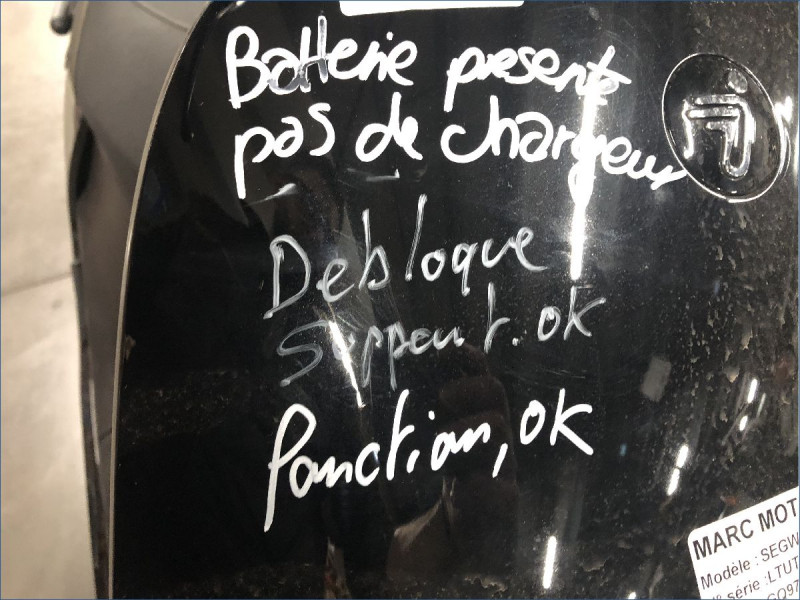 Batterie present
pas de chargeur
Debloque
Support. ok
Fonction, ok
MARC MOT
Modèle : SEGW
N° série : LTUT
GQ97